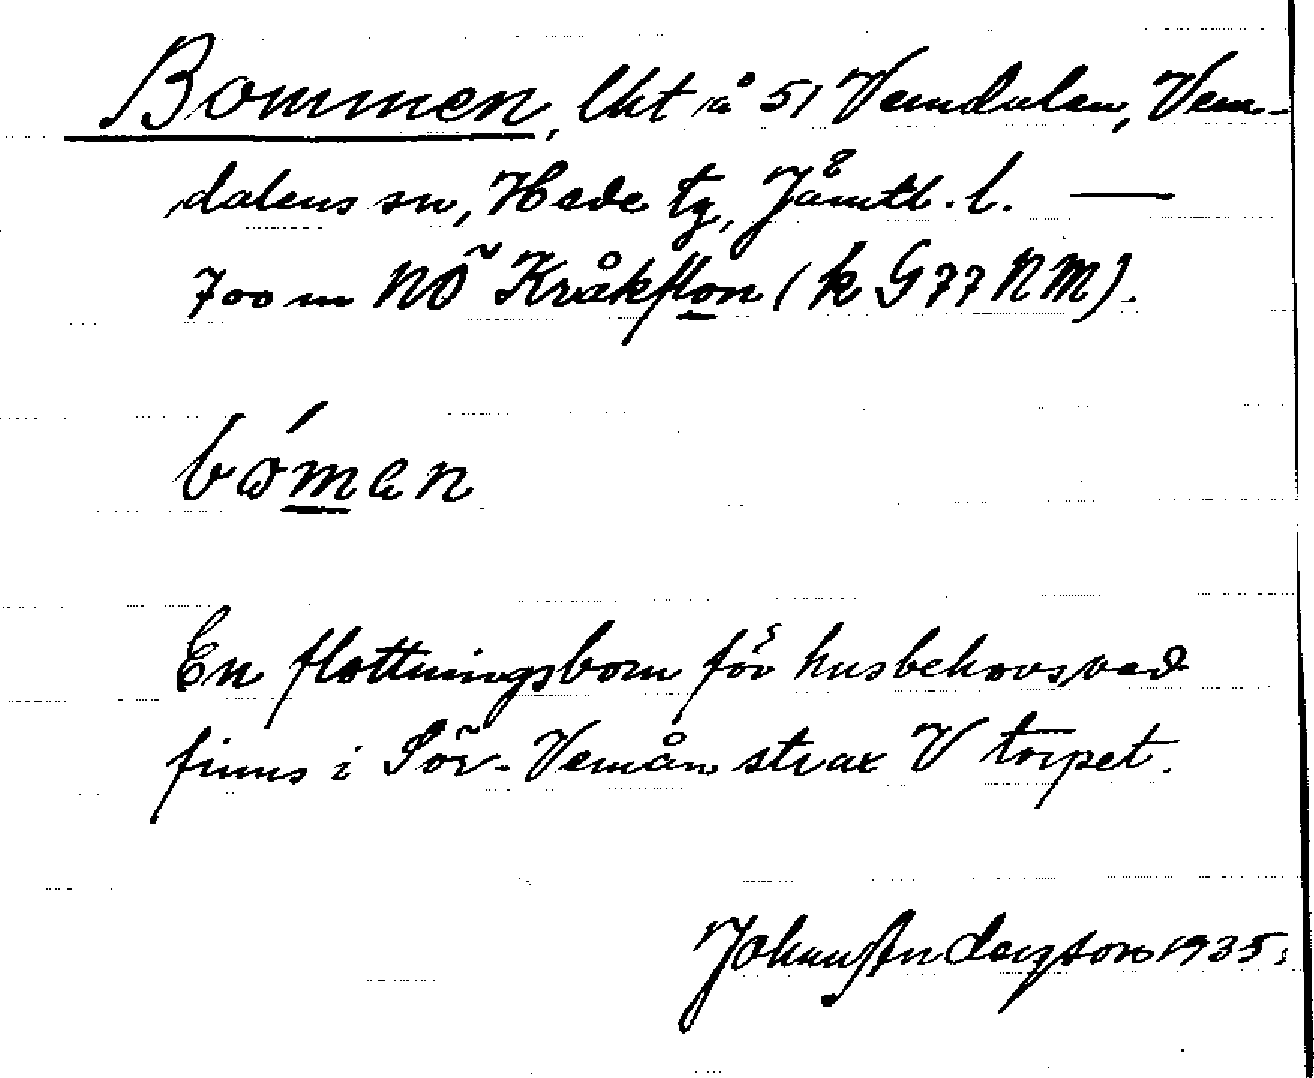 Bommen, lht å 51 Vemdalen, Vem-
dalens sn, Hede tg, Jämtl. l. —
700 m NÖ Kråkflon (k G77 NM).
bómen
En flottningsbom för husbehovsved
finns i Sör-Vemån strax V torpet.
Johan Anderzson 1935.